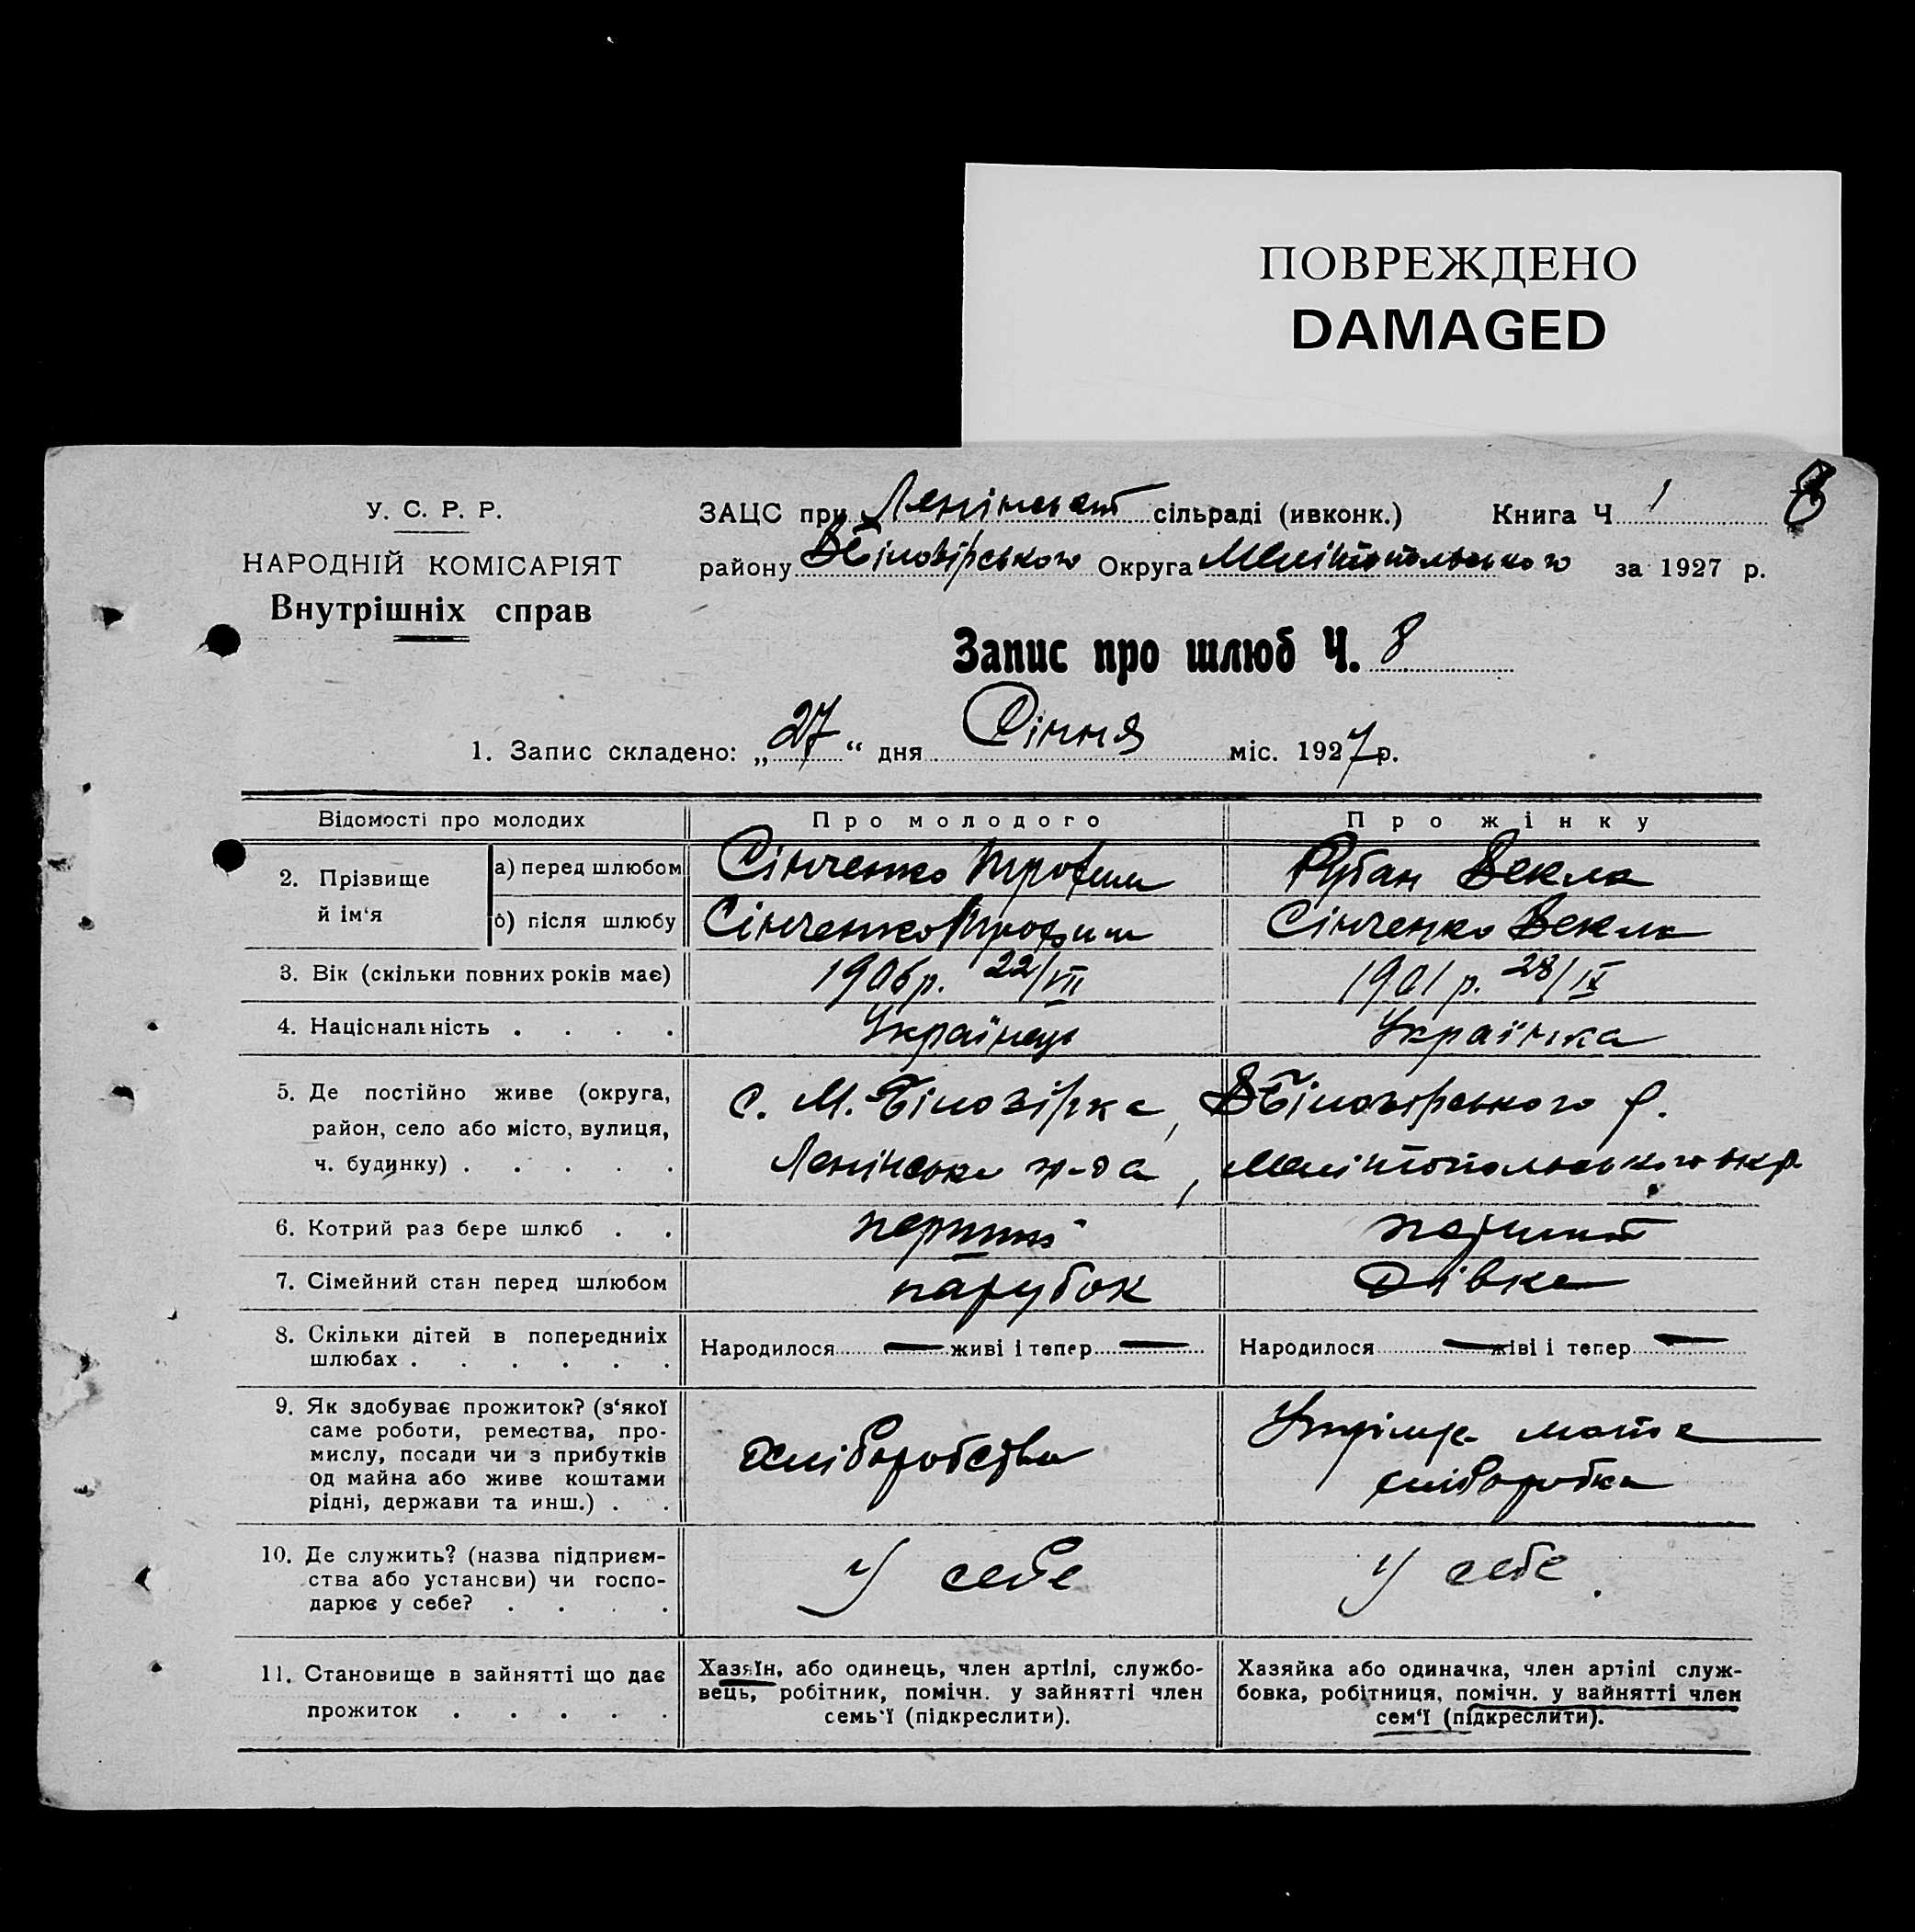 ПОВРЕЖДЕНО
DAMAGED
У. С. Р. Р.
НАРОДНІЙ КОМІСАРІЯТ
Внутрішніх справ
ЗАЦС при Ленінській сільраді (ивконк.) Книга Ч 1 8
району ВБілозірського Округа Мелітопольського за 1927 р.
Запис про шлюб Ч. 8
1. Запис складено: „27“ дня Січня міс. 1927 р.
Відомості про молодих
Про молодого
Про жінку
2. Прізвище й ім‘я
а) перед шлюбом
Сінченко Трофим
Рубан Векла
б) після шлюбу
Сінченко Трофим
Сінченко Векла
3. Вік (скільки повних років має)
1906 р. 22/VII
1901 р. 28/IX
4. Національність . . . .
Українець
Українка
5. Де постійно живе (округа,
район, село або місто, вулиця,
ч. будинку) . . . . .
с. М. Білозірка, ВБілозірського р.
Ленінська гр-да, Мелітопольського окр.
6. Котрий раз бере шлюб . .
перший
перший
7. Сімейний стан перед шлюбом
парубок
Дівка
8. Скільки дітей в попередниіх
шлюбах . . . . . .
Народилося — живі і тепер —
Народилося — живі і тепер —
9. Як здобуває прожиток? (з‘якої
саме роботи, ремества, про-
мислу, посади чи з прибутків
од майна або живе коштами
рідні, держави та инш.) . .
хліборобства
мати
хліборобка
10. Де служить? (назва підприєм-
ства або установи) чи госпо-
дарює у себе? . . . .
У себе
У себе.
11. Становище в зайнятті що дає
прожиток . . . . .
Хазяїн, або одинець, член артілі, службо-
вець, робітник, помічн. у зайнятті член
семь‘ї (підкреслити).
Хазяйка або одиначка, член артілі служ-
бовка, робітниця, помічн. у зайнятті член
сем‘ї (підкреслити).